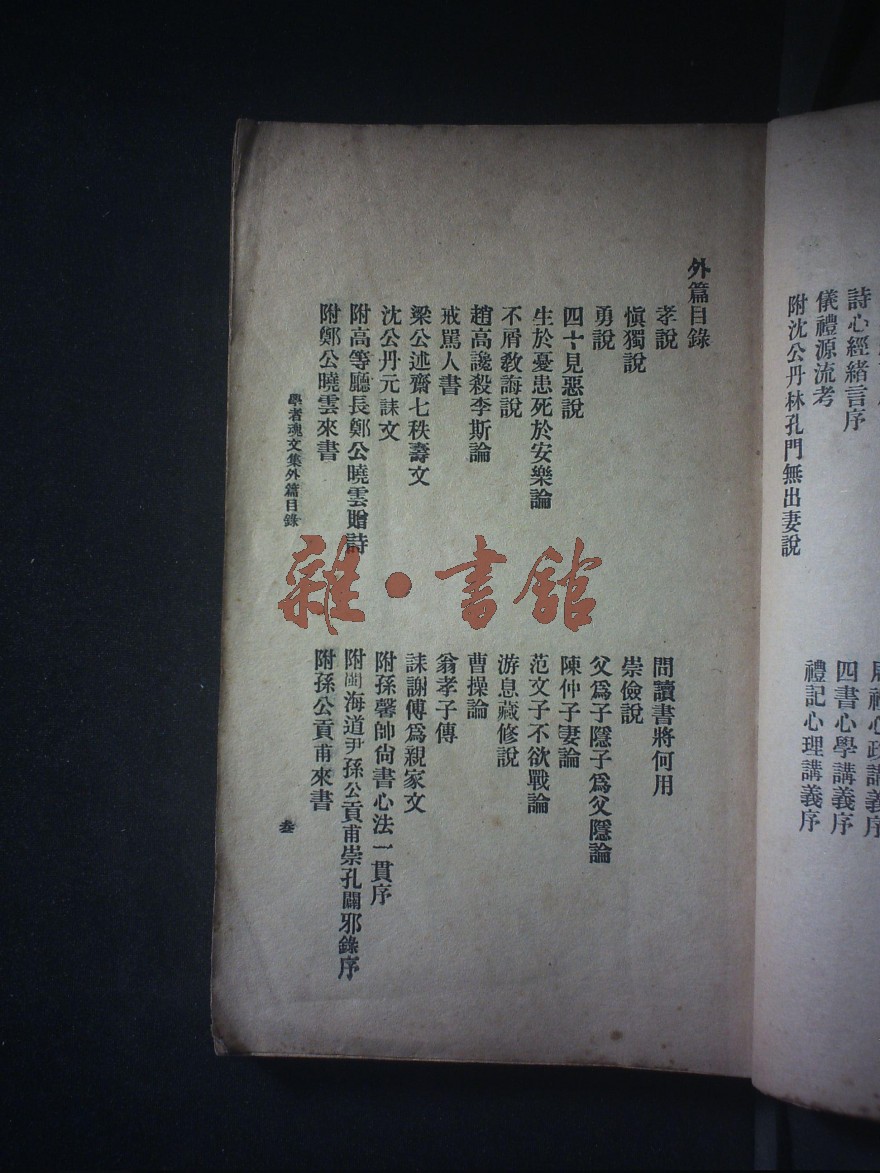 禮記心理講義序
四書心學講義序
詩心經緒言序
儀禮源流考
附沈公丹林孔門無出妻說
外篇目錄
孝說
問讀書將何用
愼獨說
崇儉說
勇說
父爲子隱子爲父隱論
四十見惡說
陳仲子妻論
生於憂患死於安樂論
范文子不欲戰論
不屑敎誨說
游息藏修說
趙高讒殺李斯論
曹操論
戒駡人書
翁孝子傳
梁公述齋七秩壽文
誄謝傅爲親家文
沈公丹元誄文
附孫馨帥尙書心法一貫序
附高等廳長鄭公曉雲贈詩
附閩海道尹孫公貢甫崇孔闢邪錄序
附鄭公曉雲來書
附孫公貢甫來書
學者魂文集外篇目錄
叁
雜·書館